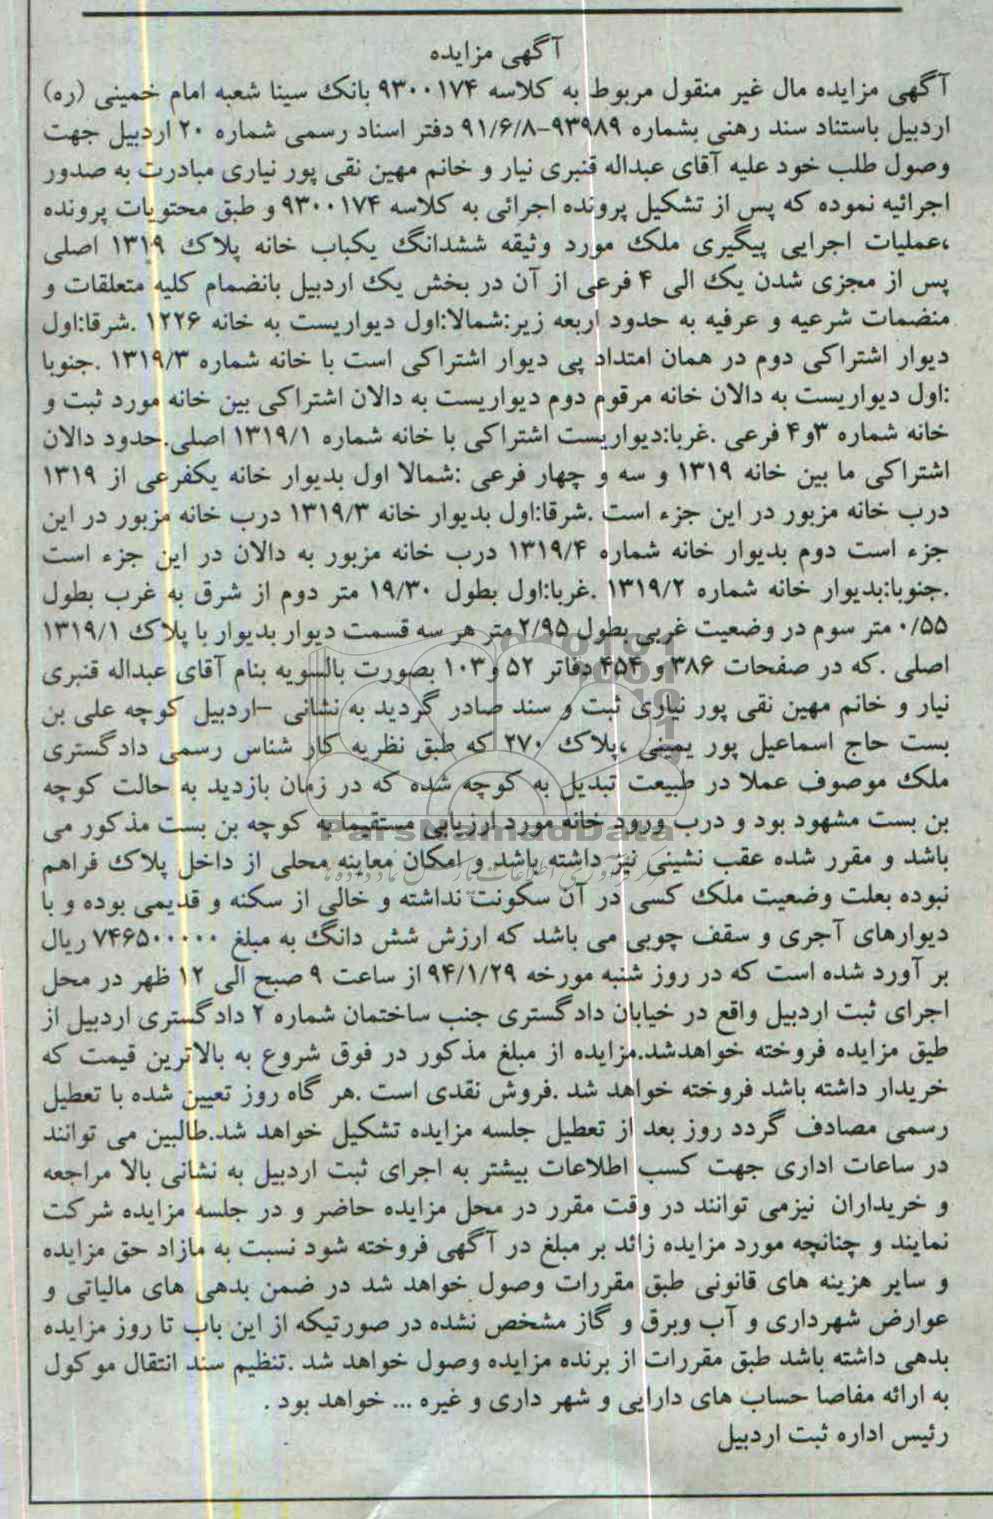 آگهی مزایده
آگهی مزایده مال غیر منقول مربوط به کلاسه ۹۳۰۰۱۷۴ بانک سینا شعبه امام خمینی (ره)
اردبیل باستناد سند رهنی بشماره ۹۳۹۸۹-۹۱/۶/۸ دفتر اسناد رسمی شماره ۲۰ اردبیل جهت
وصول طلب خود علیه آقای عبداله قنبری نیار و خانم مهین نقی پور نیاری مبادرت به صدور
اجرائیه نموده که پس از تشکیل پرونده اجرائی به کلاسه ۹۳۰۰۱۷۴ و طبق محتویات پرونده
،عملیات اجرایی پیگیری ملک مورد وثیقه ششدانگ یکباب خانه پلاک ۱۳۱۹ اصلی
پس از مجزی شدن یک الی ۴ فرعی از آن در بخش یک اردبیل بانضمام کلیه متعلقات و
منضمات شرعیه و عرفیه به حدود اربعه زیر:شمالا:اول دیواریست به خانه ۱۲۲۶ .شرقا:اول
دیوار اشتراکی دوم در همان امتداد پی دیوار اشتراکی است با خانه شماره ۱۳۱۹/۳ .جنوبا
:اول دیواریست به دالان خانه مرقوم دوم دیواریست به دالان اشتراکی بین خانه مورد ثبت و
خانه شماره ۳و۴ فرعی .غربا:دیواریست اشتراکی با خانه شماره ۱۳۱۹/۱ اصلی.حدود دالان
اشتراکی ما بین خانه ۱۳۱۹ و سه و چهار فرعی :شمالا اول بدیوار خانه یکفرعی از ۱۳۱۹
درب خانه مزبور در این جزء است .شرقا:اول بدیوار خانه ۱۳۱۹/۳ درب خانه مزبور در این
جزء است دوم بدیوار خانه شماره ۱۳۱۹/۴ درب خانه مزبور به دالان در این جزء است
.جنوبا:بدیوار خانه شماره ۱۳۱۹/۲ .غربا:اول بطول ۱۹/۳۰ متر دوم از شرق به غرب بطول
۰/۵۵ متر سوم در وضعیت غربی بطول ۲/۹۵ متر هر سه قسمت دیوار بدیوار با پلاک ۱۳۱۹/۱
اصلی .که در صفحات ۳۸۶ و ۴۵۴ دفاتر ۵۲ و۱۰۳ بصورت بالسویه بنام آقای عبداله قنبری
نیار و خانم مهین نقی پور نیاری ثبت و سند صادر گردید به نشانی –اردبیل کوچه علی بن
بست حاج اسماعیل پور یمینی ،پلاک ۲۷۰ که طبق نظریه کار شناس رسمی دادگستری
ملک موصوف عملا در طبیعت تبدیل به کوچه شده که در زمان بازدید به حالت کوچه
بن بست مشهود بود و درب ورود خانه مورد ارزیابی مستقیما به کوچه بن بست مذکور می
باشد و مقرر شده عقب نشینی نیز داشته باشد و امکان معاینه محلی از داخل پلاک فراهم
نبوده بعلت وضعیت ملک کسی در آن سکونت نداشته و خالی از سکنه و قدیمی بوده و با
دیوارهای آجری و سقف چوبی می باشد که ارزش شش دانگ به مبلغ ۷۴۶۵۰۰۰۰۰ ریال
بر آورد شده است که در روز شنبه مورخه ۹۴/۱/۲۹ از ساعت ۹ صبح الی ۱۲ ظهر در محل
اجرای ثبت اردبیل واقع در خیابان دادگستری جنب ساختمان شماره ۲ دادگستری اردبیل از
طیق مزایده فروخته خواهدشد.مزایده از مبلغ مذکور در فوق شروع به بالاترین قیمت که
خریدار داشته باشد فروخته خواهد شد .فروش نقدی است .هر گاه روز تعیین شده با تعطیل
رسمی مصادف گردد روز بعد از تعطیل جلسه مزایده تشکیل خواهد شد.طالبین می توانند
در ساعات اداری جهت کسب اطلاعات بیشتر به اجرای ثبت اردبیل به نشانی بالا مراجعه
و خریداران نیزمی توانند در وقت مقرر در محل مزایده حاضر و در جلسه مزایده شرکت
نمایند و چنانچه مورد مزایده زائد بر مبلغ در آگهی فروخته شود نسبت به مازاد حق مزایده
و سایر هزینه های قانونی طبق مقررات وصول خواهد شد در ضمن بدهی های مالیاتی و
عوارض شهرداری و آب وبرق و گاز مشخص نشده در صورتیکه از این باب تا روز مزایده
بدهی داشته باشد طبق مقررات از برنده مزایده وصول خواهد شد .تنظیم سند انتقال موکول
به ارائه مفاصا حساب های دارایی و شهر داری و غیره ... خواهد بود .
رئیس اداره ثبت اردبیل
ParsNamadData